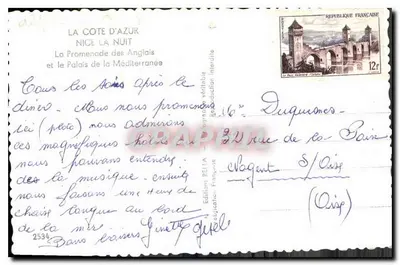 LA COTE D'AZUR
NICE LA NUIT
La Promenade des Anglais
et le Palais de la Méditerranée
REPUBLIQUE FRANÇAISE
12F
Tous les soirs après le
diner. Nous nous promenons
ici (photo) nous admirons
ces magnifiques
nous pouvons entendre
de la musique. ensuite
nous faisons une
chaise longue au bord
de la mer.
Bons baisers Ginette
2534
Duquesnes
30 rue de la
Nogent S/Oise
(Oise)